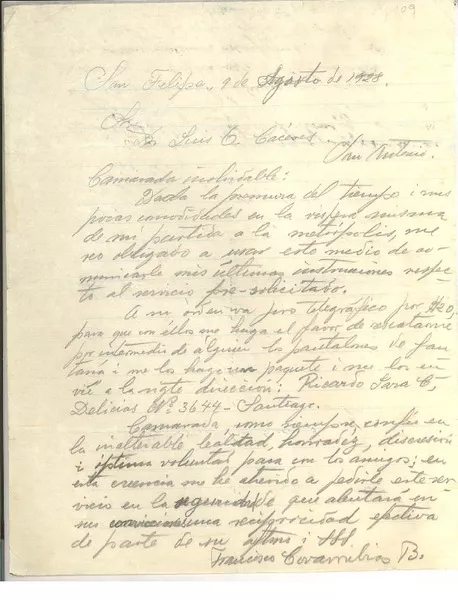 109
San Felipe, 9 de Agosto de 1928.
Sr.
Luis C. Cáceres.
San Antonio.
Camarada inolvidable:
Dada la premura del tiempo i mis
pocas comodidades en la víspera misma
de mi partida a la metrópolis, me
veo obligado a usar este medio de co-
municarle mis últimas instrucciones respec-
to al servicio pre-solicitado.
A mi orden va jiro telegráfico por $20,
para que con éllos me haga el favor de rescatarme
por intermedio de álguien los pantalones de fan-
tasía i me los haga un paquete i me los en-
víe a la sgte dirección: Ricardo Jara C,
Delicias Nº 3644 - Santiago.
Camarada, como siempre, confío en
la inalterable lealtad, honradez, discresión
i óptima voluntad para con los amigos; en
esta creencia me he atrevido a pedirle este ser-
vicio en la seguridad de que alentará en
sus convicciones una reciprocidad efectiva
de parte de su attmo i SSS.
Francisco Covarrubias B.